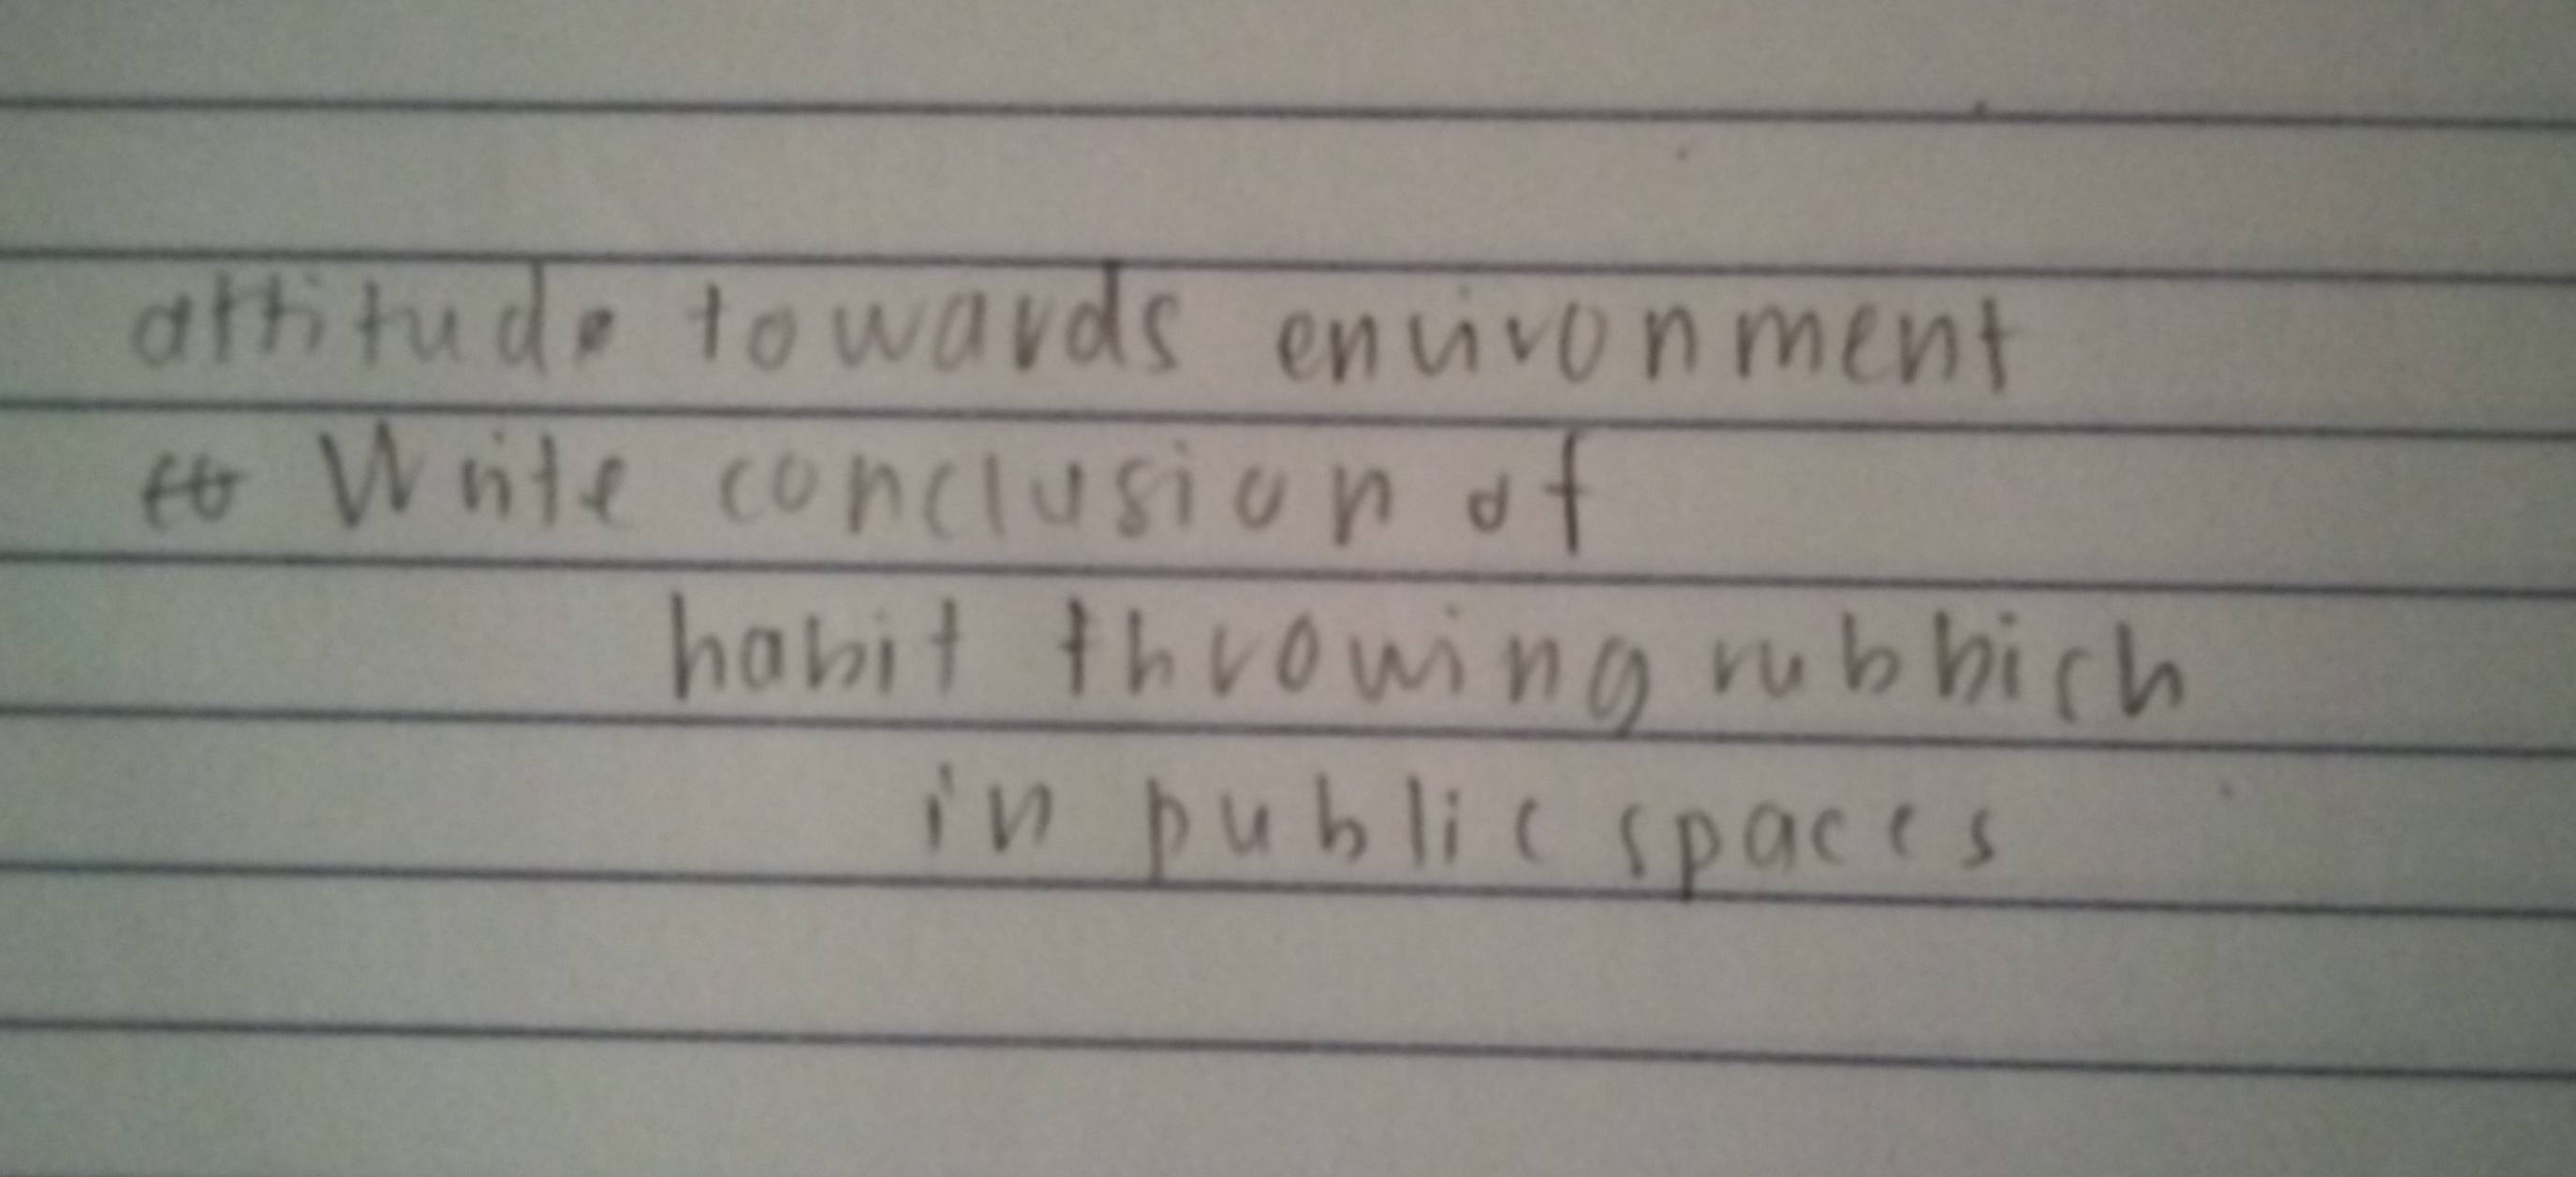 attitude towards environment
Write conclusion of
habit throwing rubbich
in public spaces